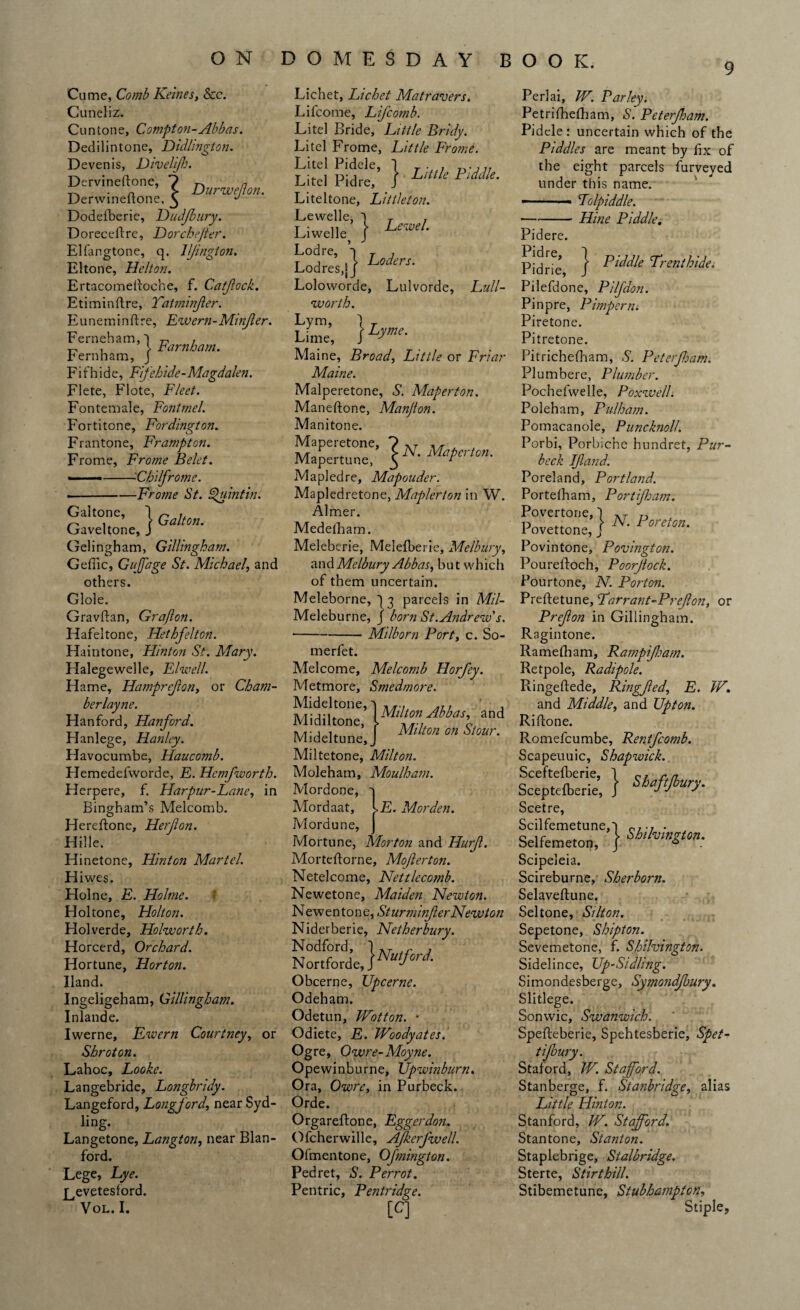 ON DOMESDAY BOOK.
9
Cume, Comb Keines, &c.
Cuneliz.
Cuntone, Compton-Abbas.
Dedilintone, Didlington.
Devenis, Diveliſh.
Dervineſtone, } Durweſton.
Derwineſtone, }
Dodeſberie, Dudſbury.
Doreceſtre, Dorcheſter.
Elfangtone, q. Ilſington.
Eltone, Helton.
Ertacomeſtoche, f. Catſtock.
Etiminſtre, Yatminſter.
Euneminſtre, Ewern-Minſter.
Ferneham, } Farnham.
Fernham, }
Fifhide, Fifehide-Magdalen.
Flete, Flote, Fleet.
Fontemale, Fontmel.
Fortitone, Fordington.
Frantone, Frampton.
Frome, Frome Belet.
—— Chilfrome.
—— Frome St. Quintin.
Galtone, } Galton.
Gaveltone, }
Gelingham, Gillingham.
Geſſic, Guſſage St. Michael, and
others.
Glole.
Gravſtan, Graſton.
Hafeltone, Hethfelton.
Haintone, Hinton St. Mary.
Halegewelle, Elwell.
Hame, Hampreſton, or Cham-
berlayne.
Hanford, Hanford.
Hanlege, Hanley.
Havocumbe, Haucomb.
Hemedeſworde, E. Hemſworth.
Herpere, f. Harpur-Lane, in
Bingham's Melcomb.
Hereſtone, Herſton.
Hille.
Hinetone, Hinton Martel.
Hiwes.
Holne, E. Holme.
Holtone, Holton.
Holverde, Holworth.
Horcerd, Orchard.
Hortune, Horton.
Iland.
Ingeligeham, Gillingham.
Inlande.
Iwerne, Ewern Courtney, or
Shroton.
Lahoc, Looke.
Langebride, Longbridy.
Langeford, Longford, near Syd-
ling.
Langetone, Langton, near Blan-
ford.
Lege, Lye.
Levetesford.
VOL. I.
Lichet, Lichet Matravers.
Liſcome, Liſcomb.
Litel Bride, Little Bridy.
Litel Frome, Little Frome.
Litel Pidele, } Little Piddle.
Litel Pidre, }
Liteltone, Littleton.
Lewelle, } Lewel.
Liwelle, }
Lodre, } Loders.
Lodres, }
Loloworde, Lulvorde, Lull-
worth.
Lym, } Lyme.
Lime, }
Maine, Broad, Little or Friar
Maine.
Malperetone, S. Maperton.
Maneſtone, Manſton.
Manitone.
Maperetone, } N. Maperton.
Mapertune, }
Mapledre, Mapouder.
Mapledretone, Maplerton in W.
Almer.
Medeſham.
Meleberie, Meleſberie, Melbury,
and Melbury Abbas, but which
of them uncertain.
Meleborne, } 3 parcels in Mil-
Meleburne, } born St. Andrew's.
—— Milborn Port, c. So-
merſet.
Melcome, Melcomb Horſey.
Metmore, Smedmore.
Mideltone, } Milton Abbas, and
Midiltone, } Milton on Stour.
Mideltune, }
Miltetone, Milton.
Moleham, Moulham.
Mordone, }
Mordaat, } E. Morden.
Mordune, }
Mortune, Morton and Hurſt.
Morteſtorne, Moſterton.
Netelcome, Nettlecomb.
Newetone, Maiden Newton.
Newentone, Sturminſter Newton
Niderberie, Netherbury.
Nodford, } Nutford.
Nortforde, }
Obcerne, Upcerne.
Odeham.
Odetun, Wotton.
Odiete, E. Woodyates.
Ogre, Owre-Moyne.
Opewinburne, Upwinburn.
Ora, Owre, in Purbeck.
Orde.
Orgareſtone, Eggerdon.
Oſcherwille, Aſkerſwell.
Oſmentone, Oſmington.
Pedret, S. Perrot.
Pentric, Pentridge.
[C]
Perlai, W. Parley.
Petriſheſham, S. Peterſham.
Pidele: uncertain which of the
Piddles are meant by ſix of
the eight parcels ſurveyed
under this name.
—— Tolpiddle.
—— Hine Piddle.
Pidere.
Pidre, } Piddle Trenthide.
Pidrie, }
Pileſdone, Pilſdon.
Pinpre, Pimpern.
Piretone.
Pitretone.
Pitricheſham, S. Peterſham.
Plumbere, Plumber.
Pocheſwelle, Poxwell.
Poleham, Pulham.
Pomacanole, Puncknoll.
Porbi, Porbiche hundret, Pur-
beck Iſland.
Poreland, Portland.
Porteſham, Portiſham.
Povertone, } N. Poreton.
Povettone, }
Povintone, Povington.
Poureſtoch, Poorſtock.
Pourtone, N. Porton.
Preſtetune, Tarrant-Preſton, or
Preſton in Gillingham.
Ragintone.
Rameſham, Rampiſham.
Retpole, Radipole.
Ringeſtede, Ringſted, E. W.
and Middle, and Upton.
Riſtone.
Romeſcumbe, Rentſcomb.
Scapeuuic, Shapwick.
Sceſteſberie, } Shaftſbury.
Scepteſberie, }
Scetre,
Scilfemetune, } Shilvington.
Selfemeton, }
Scipeleia.
Scireburne, Sherborn.
Selaveſtune.
Seltone, Silton.
Sepetone, Shipton.
Sevemetone, f. Shilvington.
Sidelince, Up-Sidling.
Simondesberge, Symondſbury.
Slitlege.
Sonwic, Swanwich.
Speſteberie, Spehtesberie, Spet-
tiſbury.
Staford, W. Stafford.
Stanberge, f. Stanbridge, alias
Little Hinton.
Stanford, W. Stafford.
Stantone, Stanton.
Staplebrige, Stalbridge.
Sterte, Stirthill.
Stibemetune, Stubhampton,
Stiple,